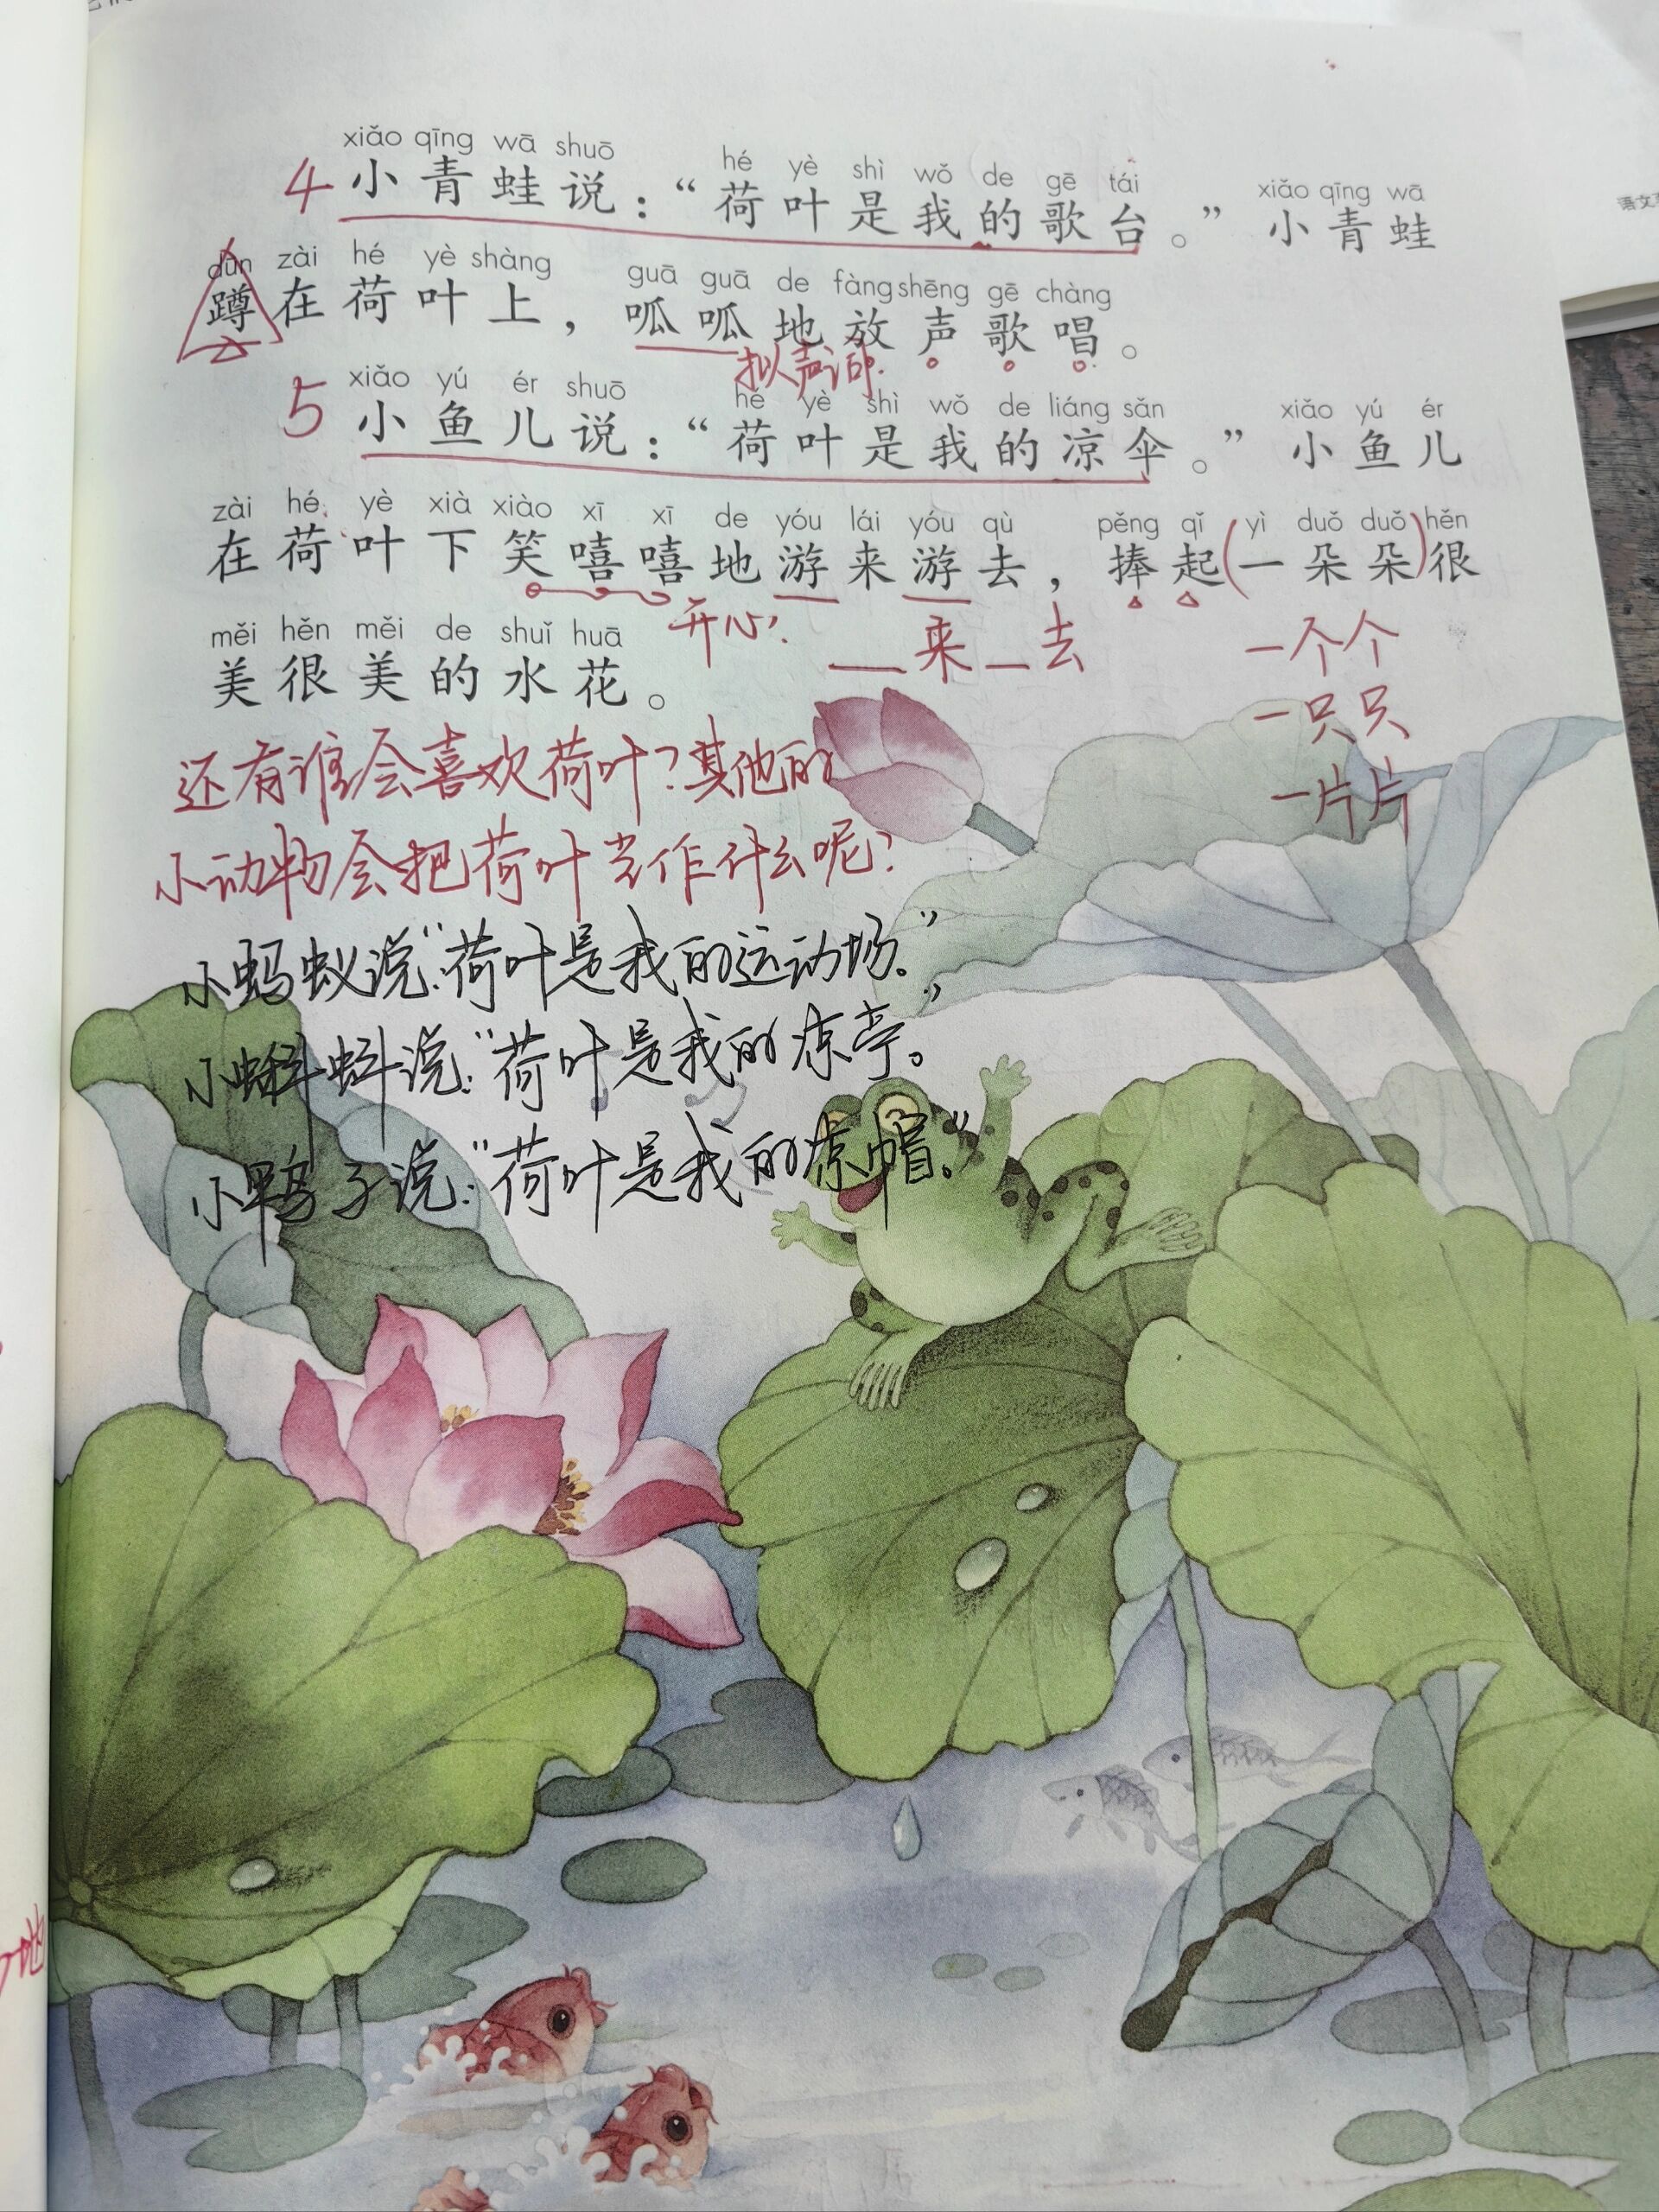 xiǎo qīng wā shuō hé yè shì wǒ de gē tái xiǎo qīng wā
4 小青蛙说：“荷叶是我的歌台。”小青蛙
dūn zài hé yè shàng guā guā de fàng shēng gē chàng
蹲在荷叶上，呱呱地放声歌唱。
拟声词
xiǎo yú ér shuō hé yè shì wǒ de liáng sǎn xiǎo yú ér
5 小鱼儿说：“荷叶是我的凉伞。”小鱼儿
zài hé yè xià xiào xī xī de yóu lái yóu qù pěng qǐ yì duǒ duǒ hěn
在荷叶下笑嘻嘻地游来游去，捧起(一朵朵)很
开心
来 去
一个个
měi hěn měi de shuǐ huā
美很美的水花。
一只只
一片片
还有谁会喜欢荷叶？其他的
小动物会把荷叶当作什么呢？
小蚂蚁说:“荷叶是我的运动场。”
小蝌蚪说:“荷叶是我的凉亭。”
小鸭子说:“荷叶是我的凉帽。”
语文
地